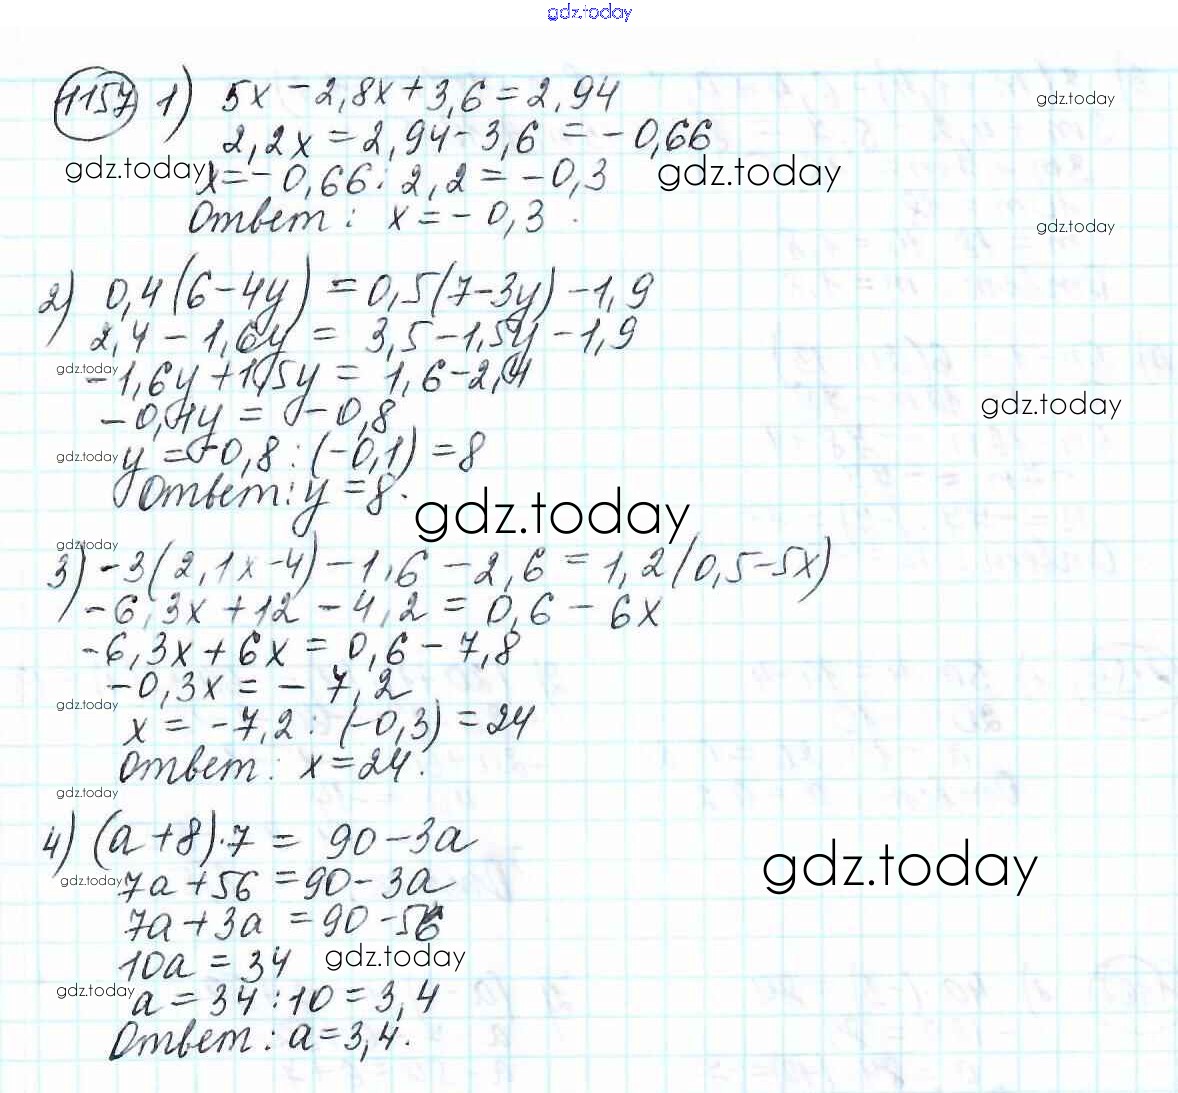 gdz.today
1157 1) 5x - 2,8x + 3,6 = 2,94
gdz.today
2,2x = 2,94 - 3,6 = - 0,66
gdz.today
x = - 0,66 : 2,2 = - 0,3
gdz.today
Ответ: x = - 0,3.
gdz.today
2) 0,4(6 - 4y) = 0,5(7 - 3y) - 1,9
2,4 - 1,6y = 3,5 - 1,5y - 1,9
gdz.today
-1,6y + 1,5y = 1,6 - 2,4
gdz.today
-0,1y = -0,8
gdz.today
y = -0,8 : (-0,1) = 8
Ответ: y = 8.
gdz.today
gdz.today
3) -3(2,1x - 4) - 1,6 - 2,6 = 1,2(0,5 - 5x)
-6,3x + 12 - 4,2 = 0,6 - 6x
-6,3x + 6x = 0,6 - 7,8
-0,3x = - 7,2
gdz.today
x = -7,2 : (-0,3) = 24
Ответ: x = 24.
gdz.today
4) (a + 8)·7 = 90 - 3a
gdz.today
gdz.today
7a + 56 = 90 - 3a
7a + 3a = 90 - 56
10a = 34
gdz.today
gdz.today
a = 34 : 10 = 3,4
Ответ: a = 3,4.